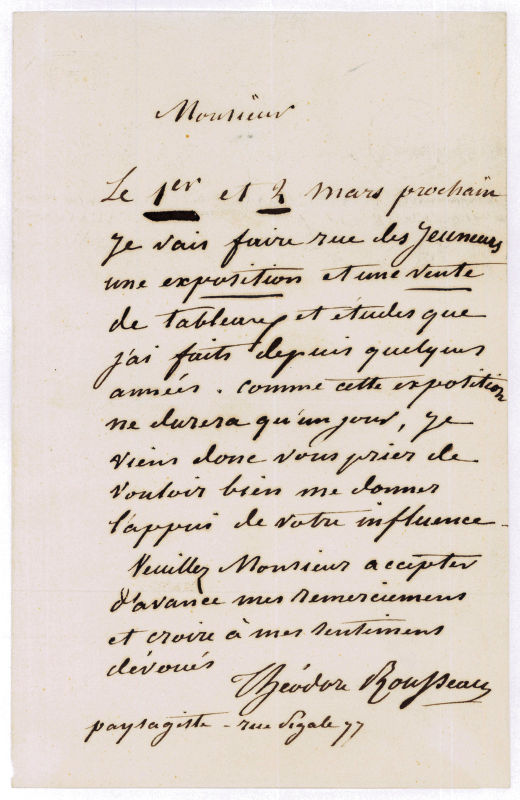 Monsieur
Le 1er et 2 mars prochain
je vais faire rue des Jeuneurs
une exposition et une vente
de tableaux et études que
j'ai faits depuis quelques
années. comme cette exposition
ne durera qu'un jour, je
viens donc vous prier de
vouloir bien me donner
l'appui de votre influence.
Veuillez Monsieur accepter
d'avance mes remerciemens
et croire à mes sentimens
dévoués
Théodore Rousseau
paysagiste - rue Pigale 77